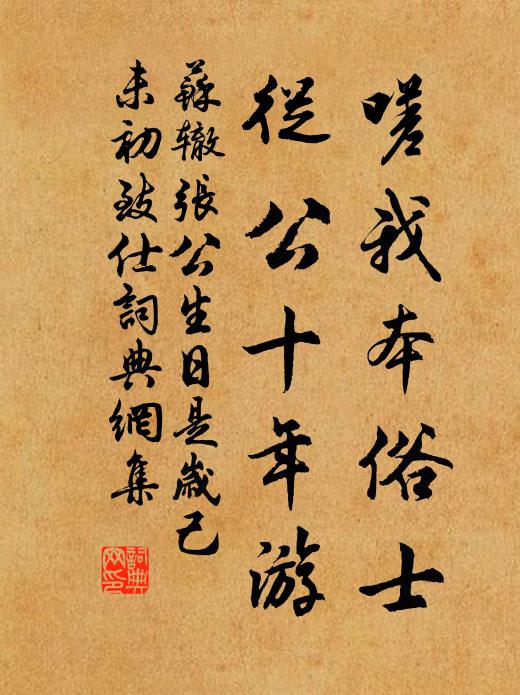 嗟我本俗士
從公十年游
蘇轍張公生日是歲己
未初致仕詞典網集
詞典网印